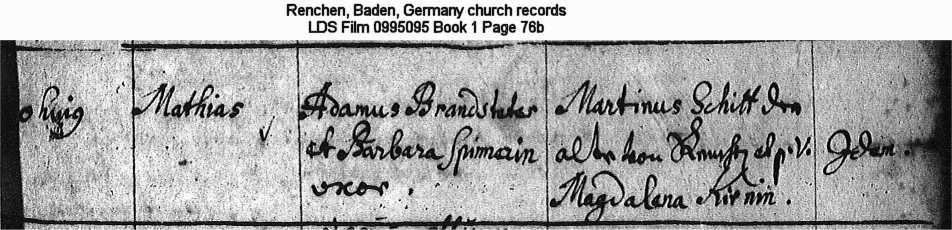 Renchen, Baden, Germany church records
LDS Film 0995095 Book 1 Page 76b
hujus
Mathias
Adamus Brandsteter
et Barbara Spinnerin
uxor.
Martinus Schitt der
alt von
Magdalena Kirnin.
Idem.